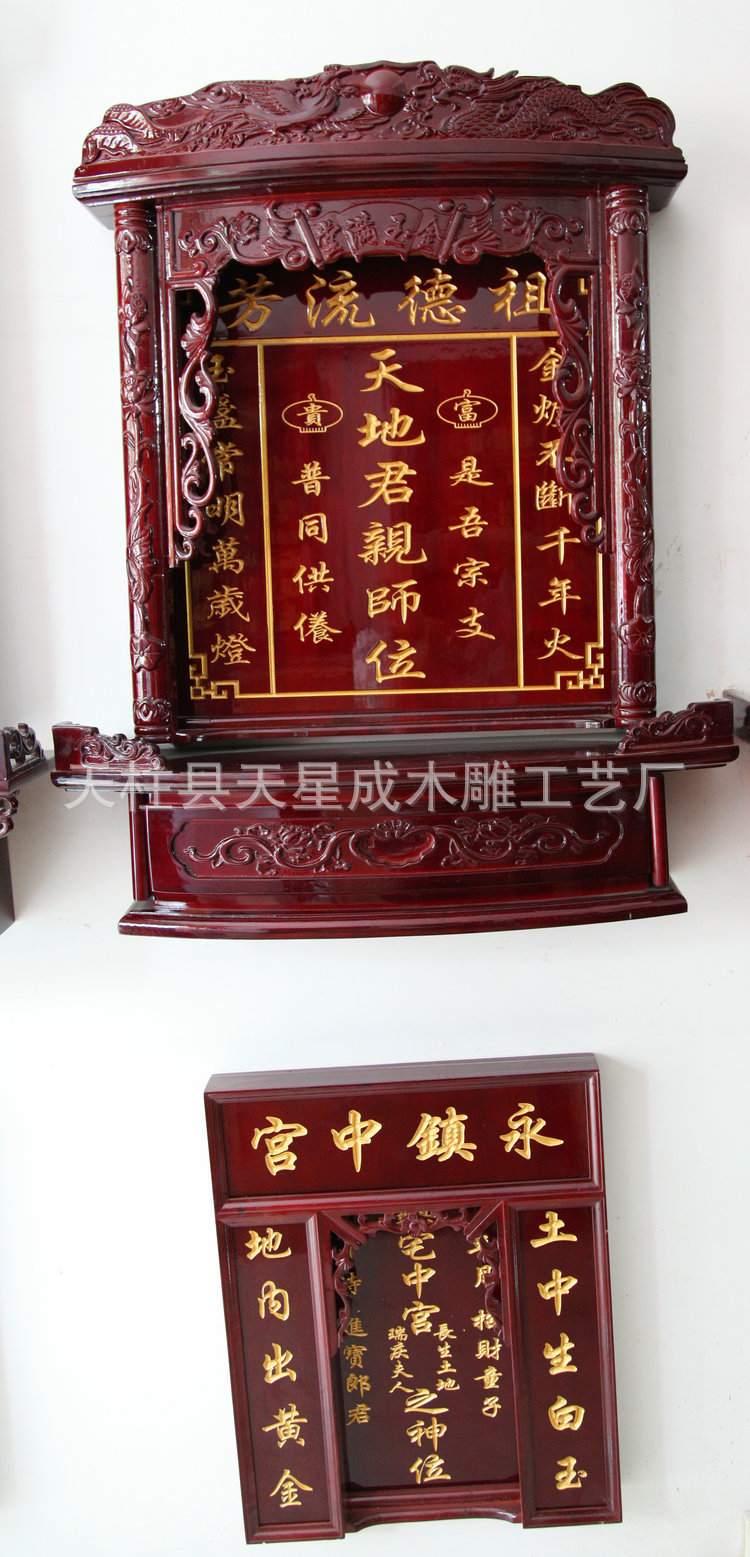 金玉滿堂
祖德流芳
金炉不斷千年火
富
是吾宗支
天地君親師位
貴
普同供養
玉盞常明萬歲燈
天柱县天星成木雕工艺厂
永鎮中宮
土中生白玉
招財童子
宅中宮
長生土地
瑞慶夫人
之神位
進寶郎君
地内出黃金